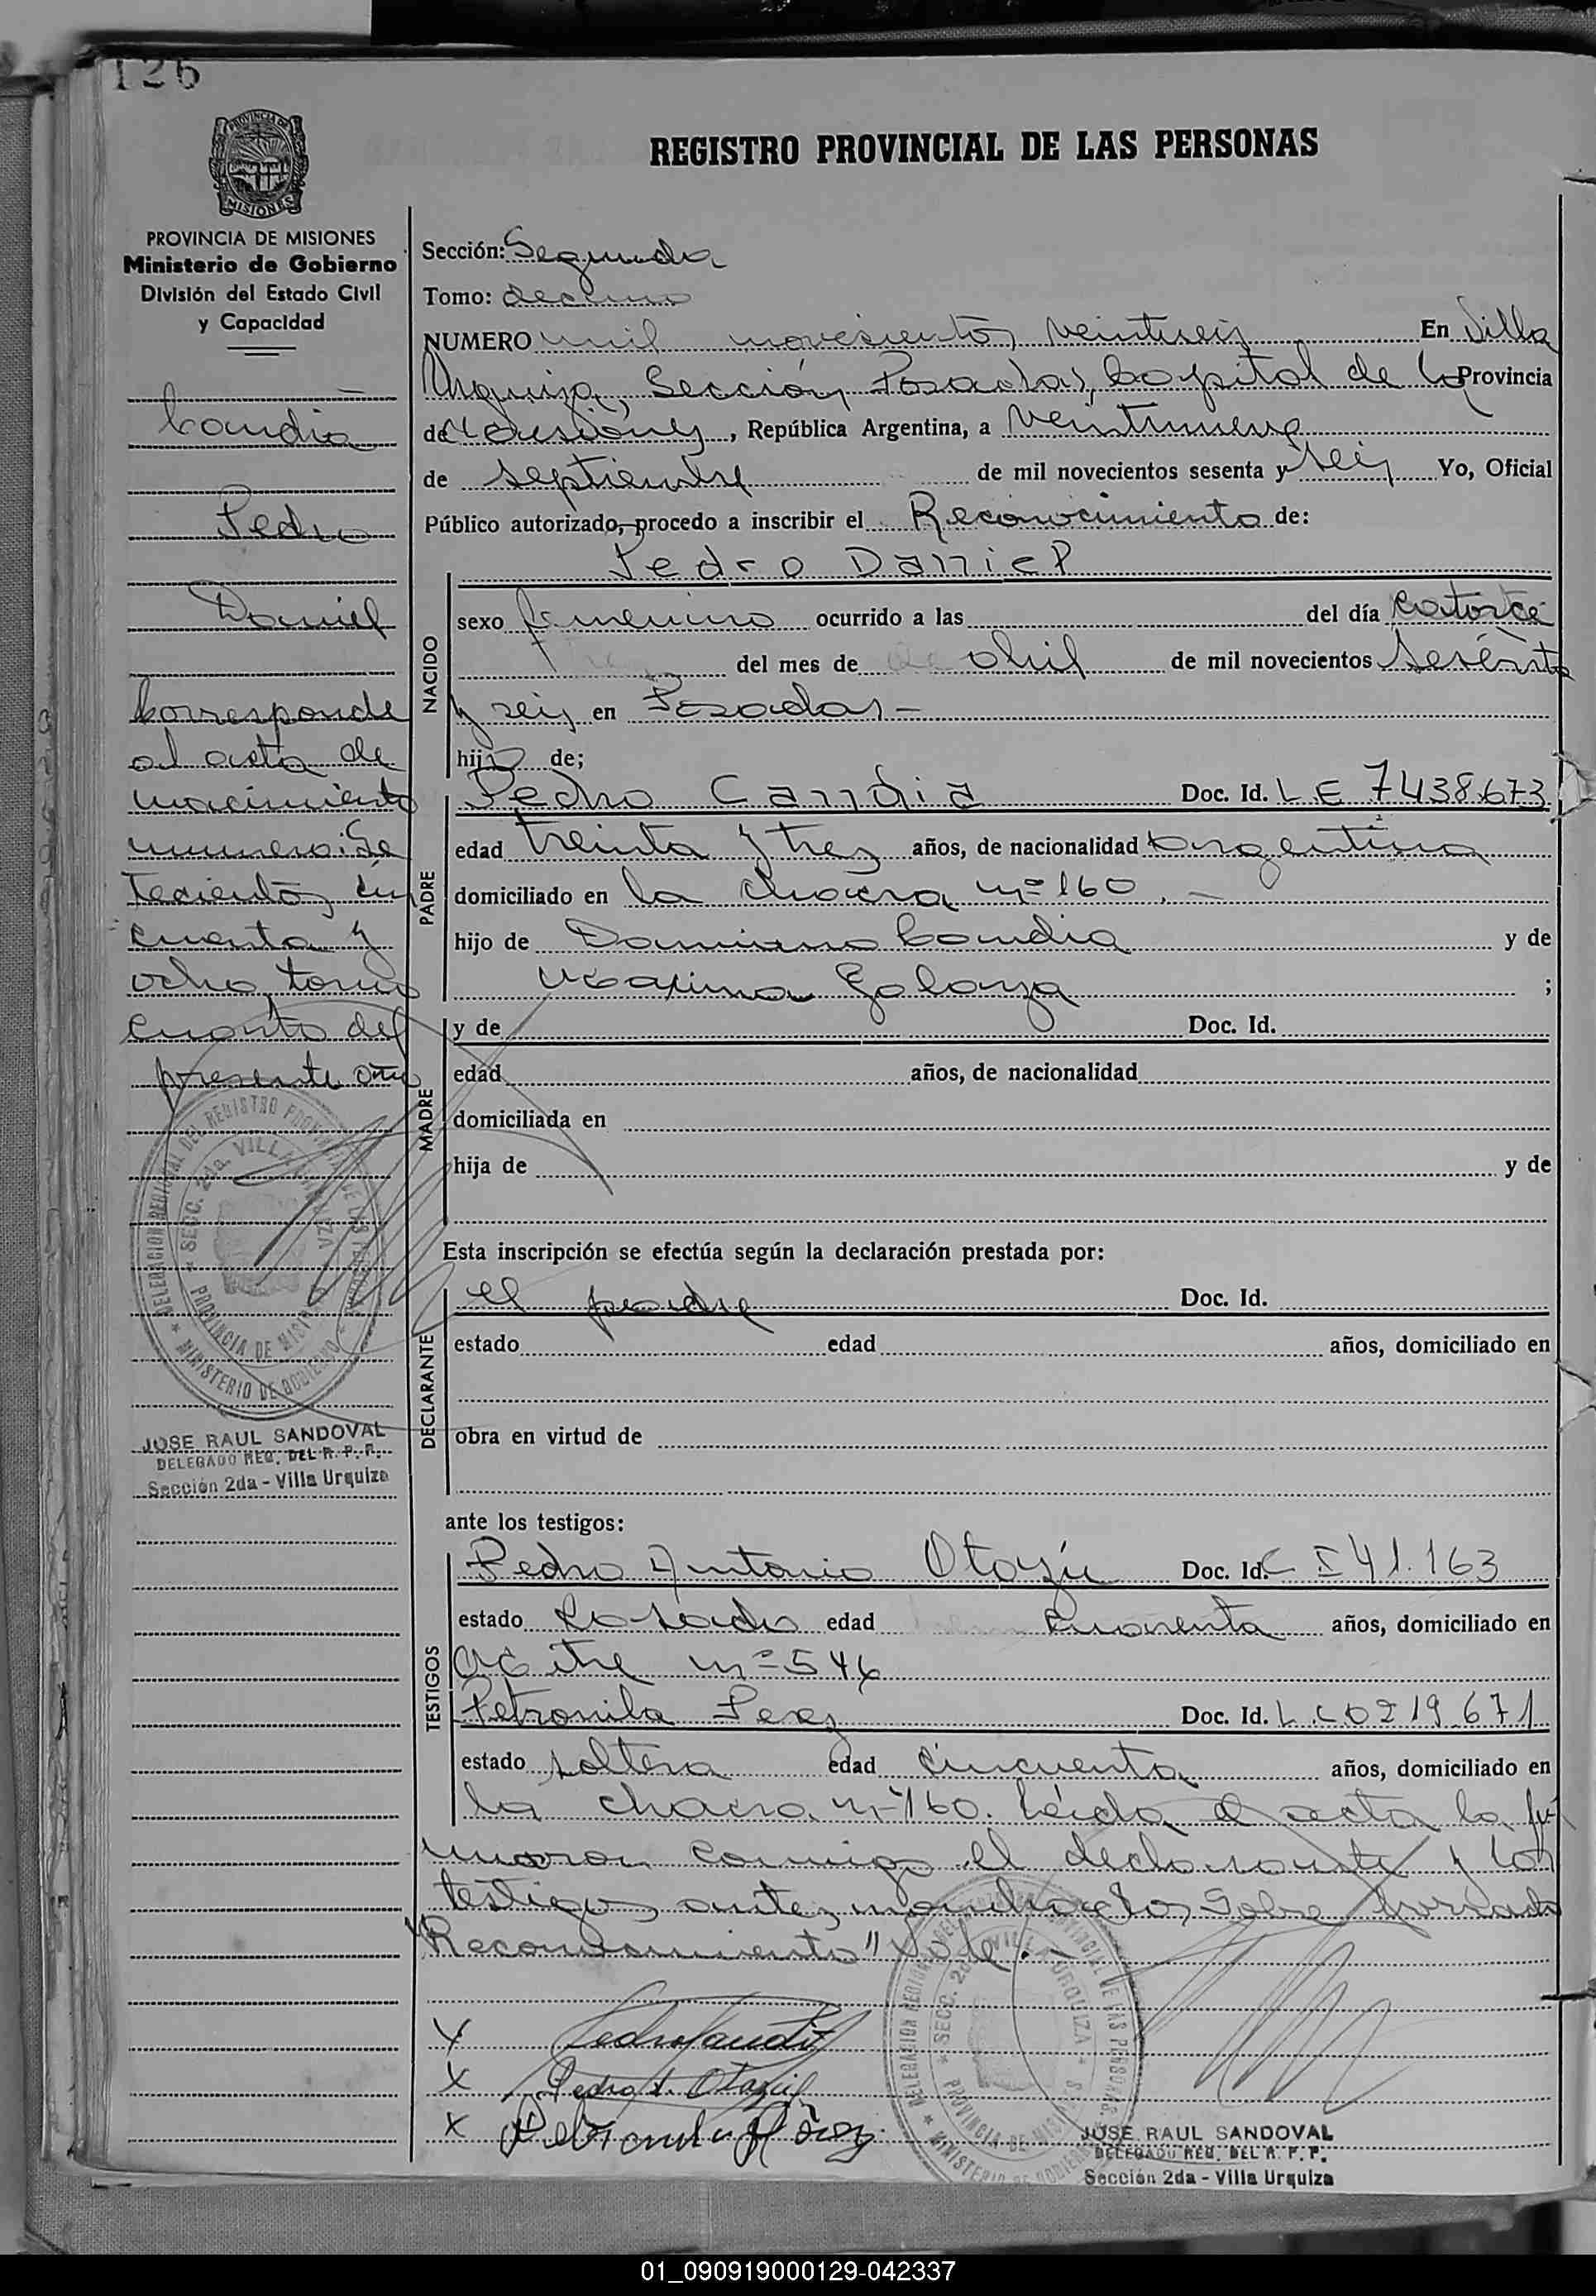 126
REGISTRO PROVINCIAL DE LAS PERSONAS
PROVINCIA DE
MISIONES
PROVINCIA DE MISIONES
Ministerio de Gobierno
División del Estado Civil
y Capacidad
Candia
Pedro
Daniel
Corresponde
al acta de
nacimiento
numero: Se
tecientos cin
cuenta y
ocho tomo
cuarto del
presente año
DELEGACION REGIONAL DEL REGISTRO PROVINCIAL DE LAS PERSONAS
SECC. 2da. VILLA URQUIZA
PROVINCIA DE MISIONES
MINISTERIO DE GOBIERNO
JOSE RAUL SANDOVAL
DELEGADO REG. DEL R. P. P.
Sección 2da - Villa Urquiza
Sección: Segunda
Tomo: decimo
NUMERO mil novecientos veintiseis En Villa
Urquiza, Sección Posadas, Capital de la Provincia
de Misiones, República Argentina, a veintinueve
de septiembre de mil novecientos sesenta y seis Yo, Oficial
Público autorizado, procedo a inscribir el Reconocimiento de:
Pedro Daniel
NACIDO
sexo femenino ocurrido a las del día catorce
del mes de abril de mil novecientos sesenta
y seis en Posadas -
hijo de;
PADRE
Pedro Candia Doc. Id. L E 7438.673
edad treinta y tres años, de nacionalidad argentina
domiciliado en la chacra nº 160. -
hijo de Damiano Candia y de
Maxima Galarza ;
MADRE
y de Doc. Id.
edad años, de nacionalidad
domiciliada en
hija de y de
Esta inscripción se efectúa según la declaración prestada por:
DECLARANTE
el padre Doc. Id.
estado edad años, domiciliado en
obra en virtud de
ante los testigos:
TESTIGOS
Pedro Antonio Otazú Doc. Id. C I 41.163
estado casado edad cuarenta años, domiciliado en
Mitre nº 546
Petronila Perez Doc. Id. L C 0219.671
estado soltera edad cincuenta años, domiciliado en
la chacra nº 160. Leida el acta la fir
maron conmigo el declarante y los
testigos antes mencionados Sobre borrado
"Reconocimiento" Vale. -
X Pedro Candia
X Pedro A. Otazú
X Petronila Pérez
DELEGACION REGIONAL DEL REGISTRO PROVINCIAL DE LAS PERSONAS
SECC. 2da. VILLA URQUIZA
PROVINCIA DE MISIONES
MINISTERIO DE GOBIERNO
JOSE RAUL SANDOVAL
DELEGADO REG. DEL R. P. P.
Sección 2da - Villa Urquiza
01_090919000129-042337